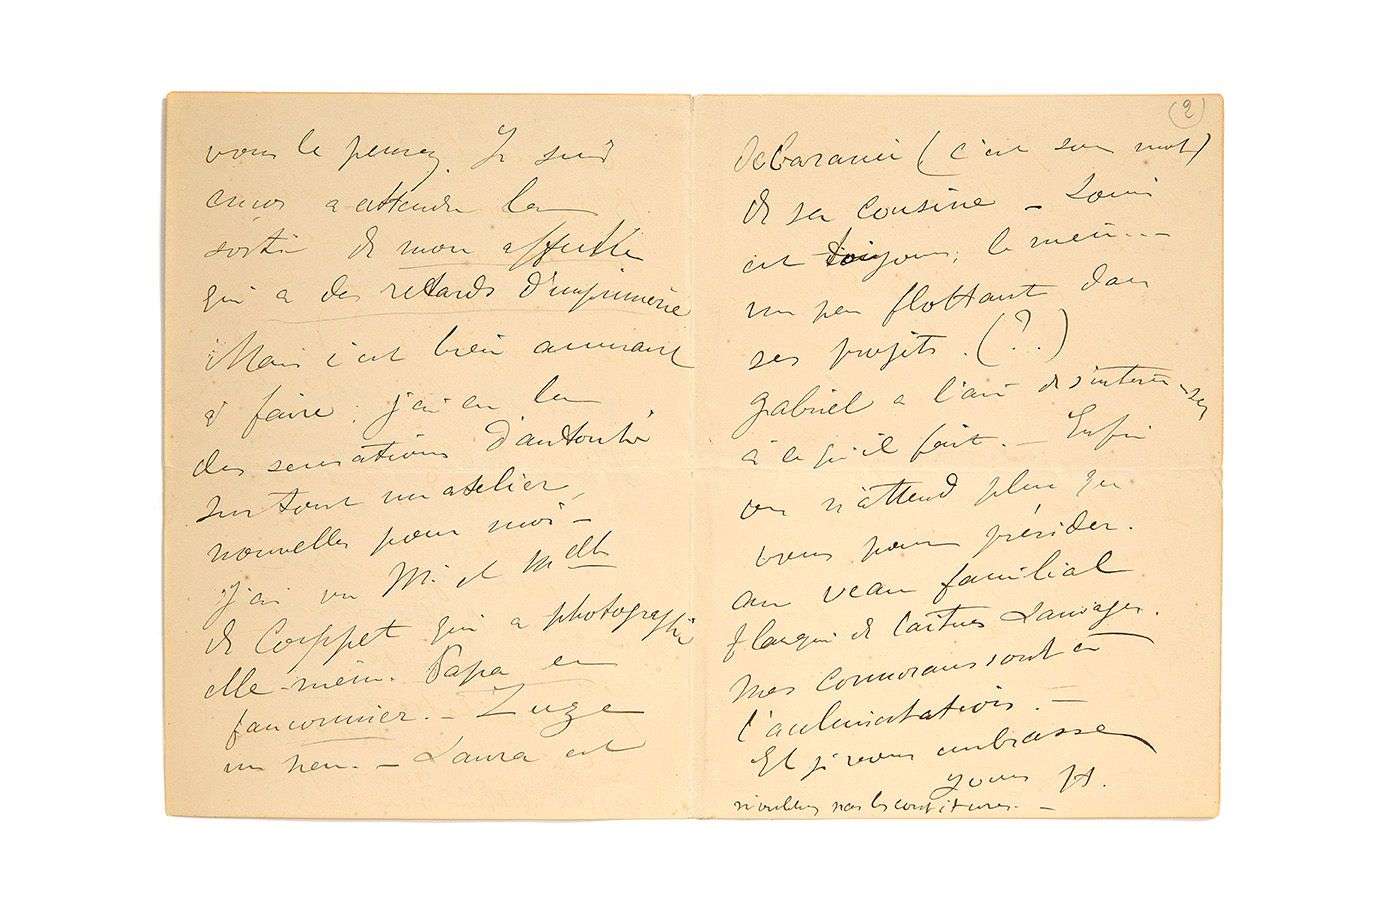 vous le pensez. Je suis
encore a attendre la
sortie de mon affiche
qui a des retards d'imprimerie
Mais c'est bien amusant
à faire. j'ai eu la
des sensations d'autorité
sur tout un atelier,
nouvelles pour moi –
J'ai vu Mr. et Melle
de Coippet qui a photographié
elle-même. Papa en
fauconnier. –
un peu. – Laura est
debarassée (c'est son mot)
de sa cousine – Louis
est toujours, le même.. –
un peu flottant dans
ses projets. (?..)
Gabriel a l'air de s'intéresser
à ce qu'il fait. – Enfin
on n'attend plus que
vous pour présider.
au veau familial
flanqué de Sauvages.
Mes cormorans sont à
l'acclimatation. –
Et je vous embrasse
yours H.
n'oubliez pas les confitures. –
(2)